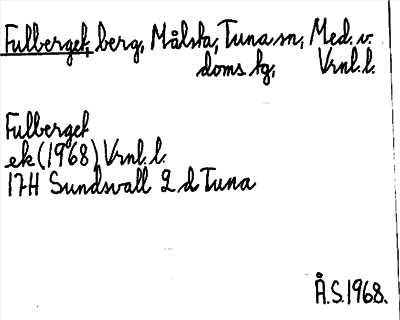 Fulberget, berg, Målsta, Tuna sn, Med. v.
doms hg, Vrnl. l.
Fulberget
ek (1968) Vrnl. l.
17H Sundsvall 2 d Tuna
Å.S.1968.